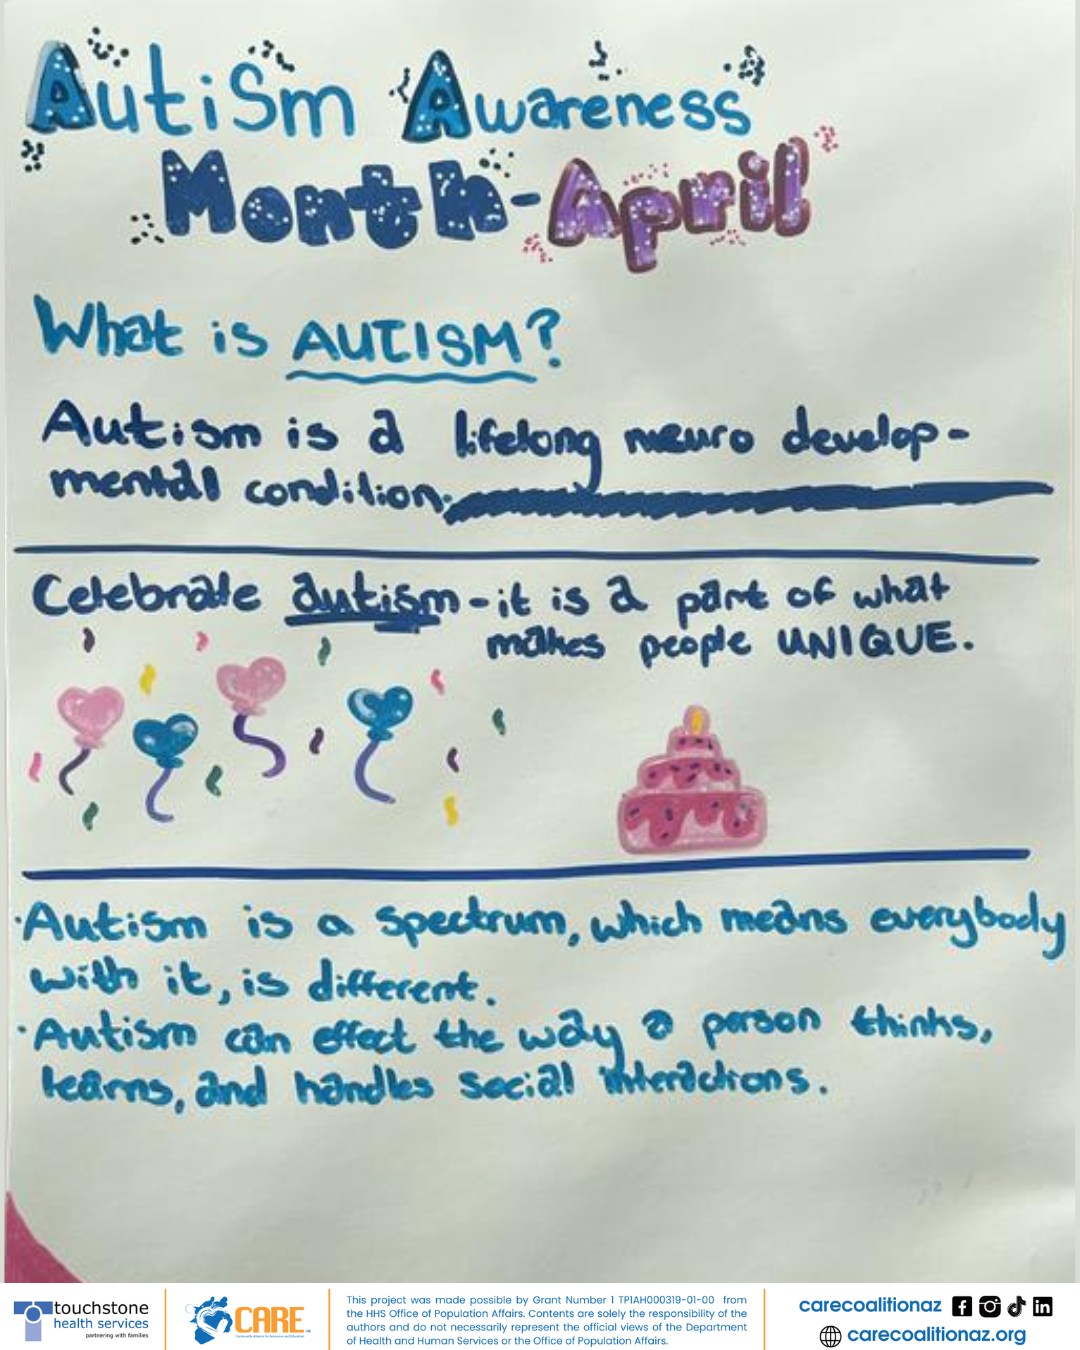 Autism Awareness
Month-April
What is AUTISM?
Autism is a lifelong neuro develop-
mental condition.
Celebrate autism - it is a part of what
makes people UNIQUE.
·Autism is a spectrum, which means everybody
with it, is different.
·Autism can effect the way a person thinks,
learns, and handles social interactions.
touchstone
health services
partnering with families
CARE
This project was made possible by Grant Number 1 TP1AH000319-01-00 from
the HHS Office of Population Affairs. Contents are solely the responsibility of the
authors and do not necessarily represent the official views of the Department
of Health and Human Services or the Office of Population Affairs.
carecoalitionaz
carecoalitionaz.org